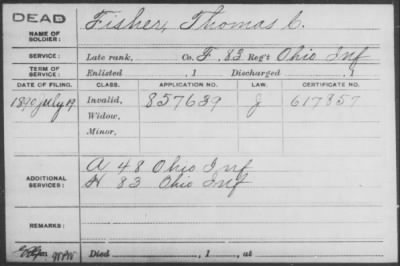 DEAD
NAME OF SOLDIER: Fisher, Thomas C.
SERVICE: Late rank, Co. F. 83 Reg't Ohio Inf
TERM OF SERVICE: Enlisted , 1 Discharged , 1
DATE OF FILING. CLASS. APPLICATION NO. LAW. CERTIFICATE NO.
1890 July 19 Invalid, 857639 J 617357
Widow,
Minor,
ADDITIONAL SERVICES: A 48 Ohio Inf
H 83 Ohio Inf
REMARKS:
Died , 1 , at